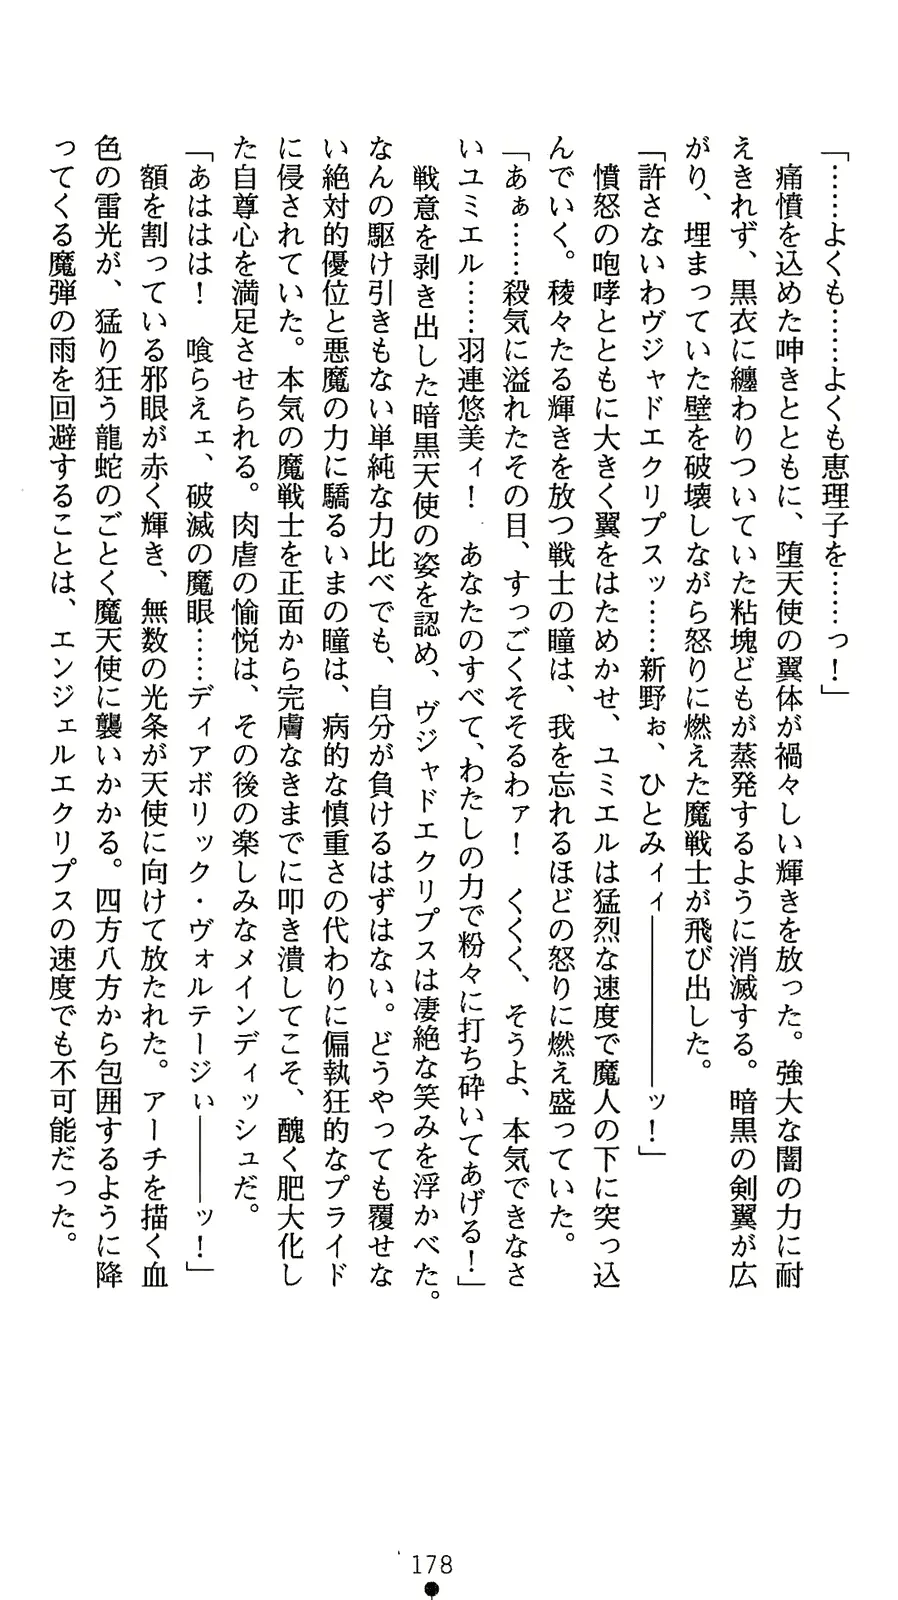 「……よくも……よくも恵理子を……っ！」
　痛憤を込めた呻きとともに、堕天使の翼体が禍々しい輝きを放った。強大な闇の力に耐
えきれず、黒衣に纏わりついていた粘塊どもが蒸発するように消滅する。暗黒の剣翼が広
がり、埋まっていた壁を破壊しながら怒りに燃えた魔戦士が飛び出した。
「許さないわヴジャドエクリプスッ……新野ぉ、ひとみィィ――――――ッ！」
　憤怒の咆哮とともに大きく翼をはためかせ、ユミエルは猛烈な速度で魔人の下に突っ込
んでいく。稜々たる輝きを放つ戦士の瞳は、我を忘れるほどの怒りに燃え盛っていた。
「あぁ……殺気に溢れたその目、すっごくそそるわァ！　くくく、そうよ、本気できなさ
いユミエル……羽連悠美ィ！　あなたのすべて、わたしの力で粉々に打ち砕いてあげる！」
　戦意を剥き出した暗黒天使の姿を認め、ヴジャドエクリプスは凄絶な笑みを浮かべた。
なんの駆け引きもない単純な力比べでも、自分が負けるはずはない。どうやっても覆せな
い絶対的優位と悪魔の力に驕るいまの瞳は、病的な慎重さの代わりに偏執狂的なプライド
に侵されていた。本気の魔戦士を正面から完膚なきまでに叩き潰してこそ、醜く肥大化し
た自尊心を満足させられる。肉虐の愉悦は、その後の楽しみなメインディッシュだ。
「あははは！　喰らえェ、破滅の魔眼……ディアボリック・ヴォルテージぃ―――ッ！」
　額を割っている邪眼が赤く輝き、無数の光条が天使に向けて放たれた。アーチを描く血
色の雷光が、猛り狂う龍蛇のごとく魔天使に襲いかかる。四方八方から包囲するように降
ってくる魔弾の雨を回避することは、エンジェルエクリプスの速度でも不可能だった。
178